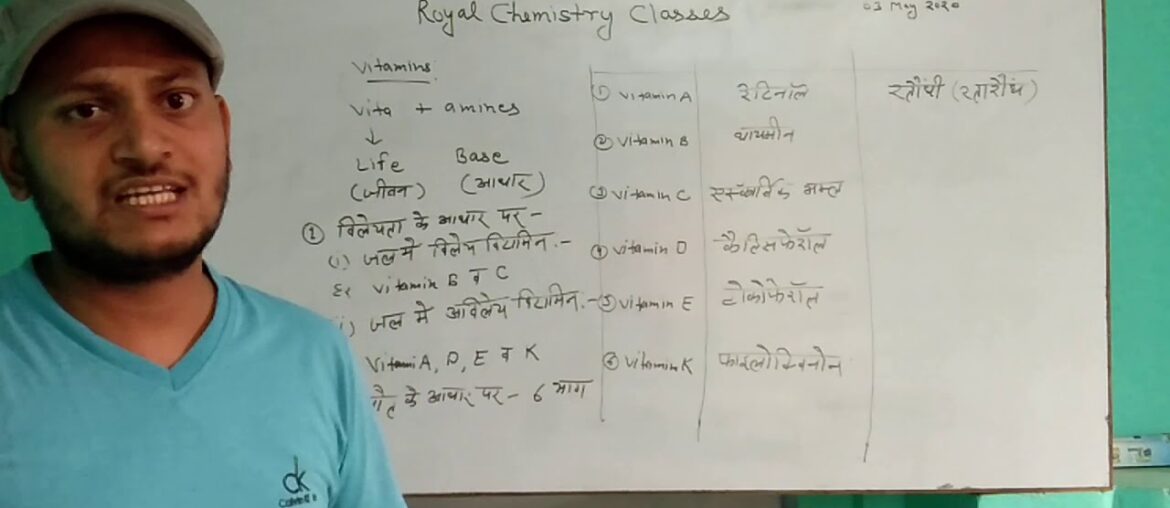 Royal Chemistry Classes
03 May 2020
Vitamins:
Vita + amines
↓
Life Base
(जीवन) (आधार)
① विलेयता के आधार पर -
(i) जल मे विलेय विटामिन :-
Ex vitamin B व C
i) जल मे अविलेय विटामिन :-
Vitami A, D, E व K
के आधार पर - 6 भाग
① Vitamin A रेटिनॉल रतौंधी (रतारौंध)
② Vitamin B थायमीन
③ Vitamin C एस्कार्बिक अम्ल
④ Vitamin D कैल्सिफेरॉल
⑤ Vitamin E टोकोफेरॉल
⑥ Vitamin K फाइलोक्विनोन
ck